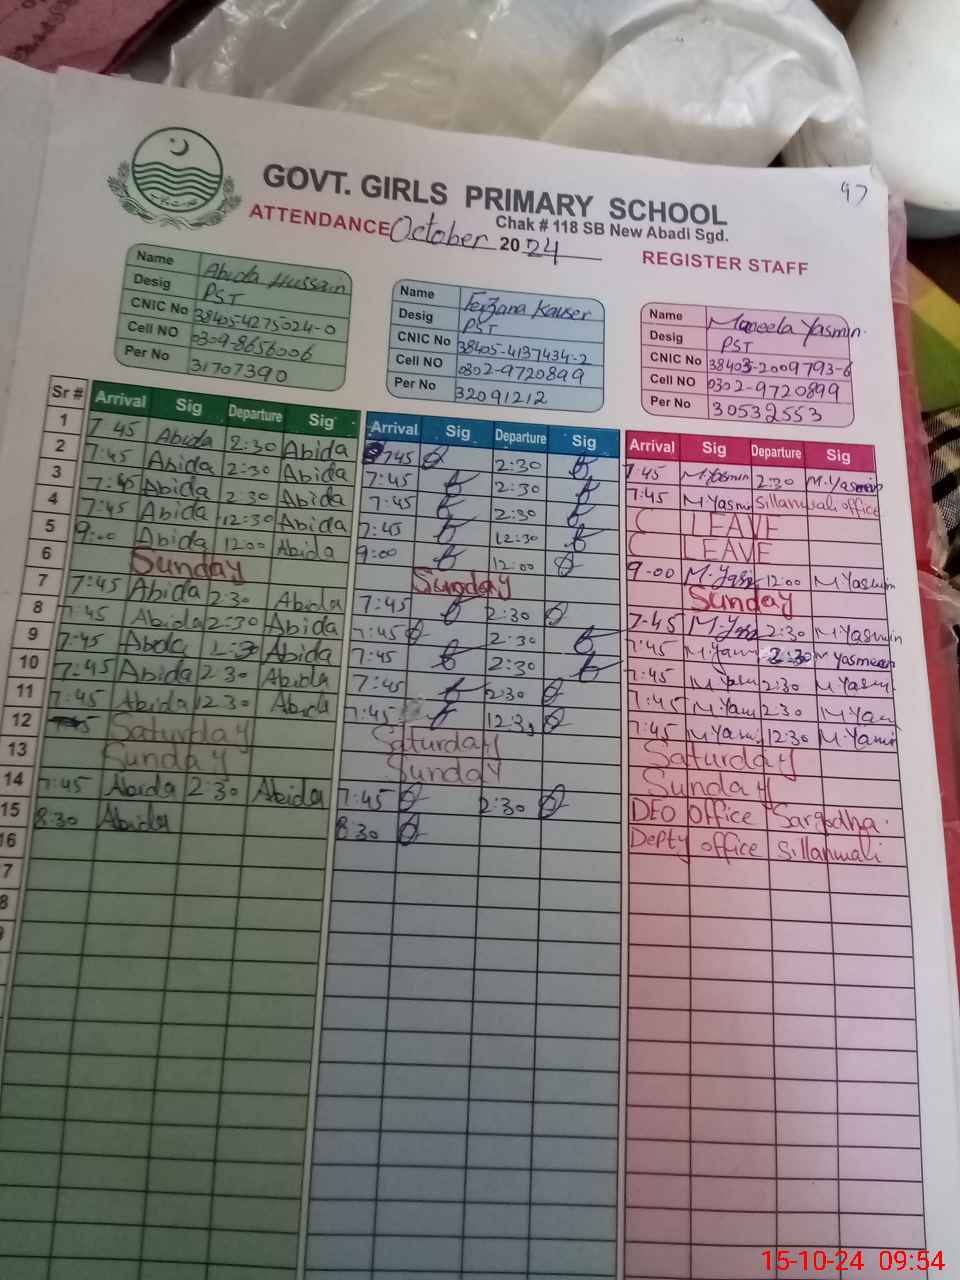 97
GOVT. GIRLS PRIMARY SCHOOL
Chak # 118 SB New Abadi Sgd.
ATTENDANCE October 2024 REGISTER STAFF
Name Abida Hussain
Desig PST
CNIC No 38405-4275024-0
Cell NO 0309-8656006
Per No 31707390
Name Ferzana Kauser
Desig PST
CNIC No 38405-4137434-2
Cell NO 0302-9720899
Per No 32091212
Name Maneela Yasmin
Desig PST
CNIC No 38403-2009793-6
Cell NO 0302-9720899
Per No 30532553
Sr # Arrival Sig Departure Sig Arrival Sig Departure Sig Arrival Sig Departure Sig
1 7 45 Abida 2:30 Abida 745 2:30 7 45 M.Yasmin 2:30 M.Yasmin
2 7:45 Abida 2:30 Abida 7:45 2:30 7:45 M.Yasmin Sillanwali office
3 7:45 Abida 2:30 Abida 7:45 2:30 C LEAVE
4 7:45 Abida 12:30 Abida 7:45 12:30 C LEAVE
5 9:00 Abida 12:00 Abida 9:00 12:00 9-00 M.Yasmin 12:00 M Yasmin
6 Sunday Sunday Sunday
7 7:45 Abida 2:30 Abida 7:45 2:30 7-45 2:30 M Yasmin
8 7:45 Abida 2:30 Abida 7:45 2:30 7:45 M.Yam 2:30 M Yasmeen
9 7:45 Abida 2:30 Abida 7:45 2:30 7:45 2:30 M Yasmin
10 7:45 Abida 2 30 Abida 7:45 2:30 7:45 M Yam 2:30 M Yam
11 7:45 Abida 12 30 Abida 7:45 12:30 7:45 M Yam 12:30 M Yamin
12 Saturday Saturday Saturday
13 Sunday Sunday Sunday
14 7:45 Abida 2:30 Abida 7:45 2:30 DEO office Sargodha
15 8:30 Abida 8:30 Depty office Sillanwali
16
7
8
9
15-10-24 09:54